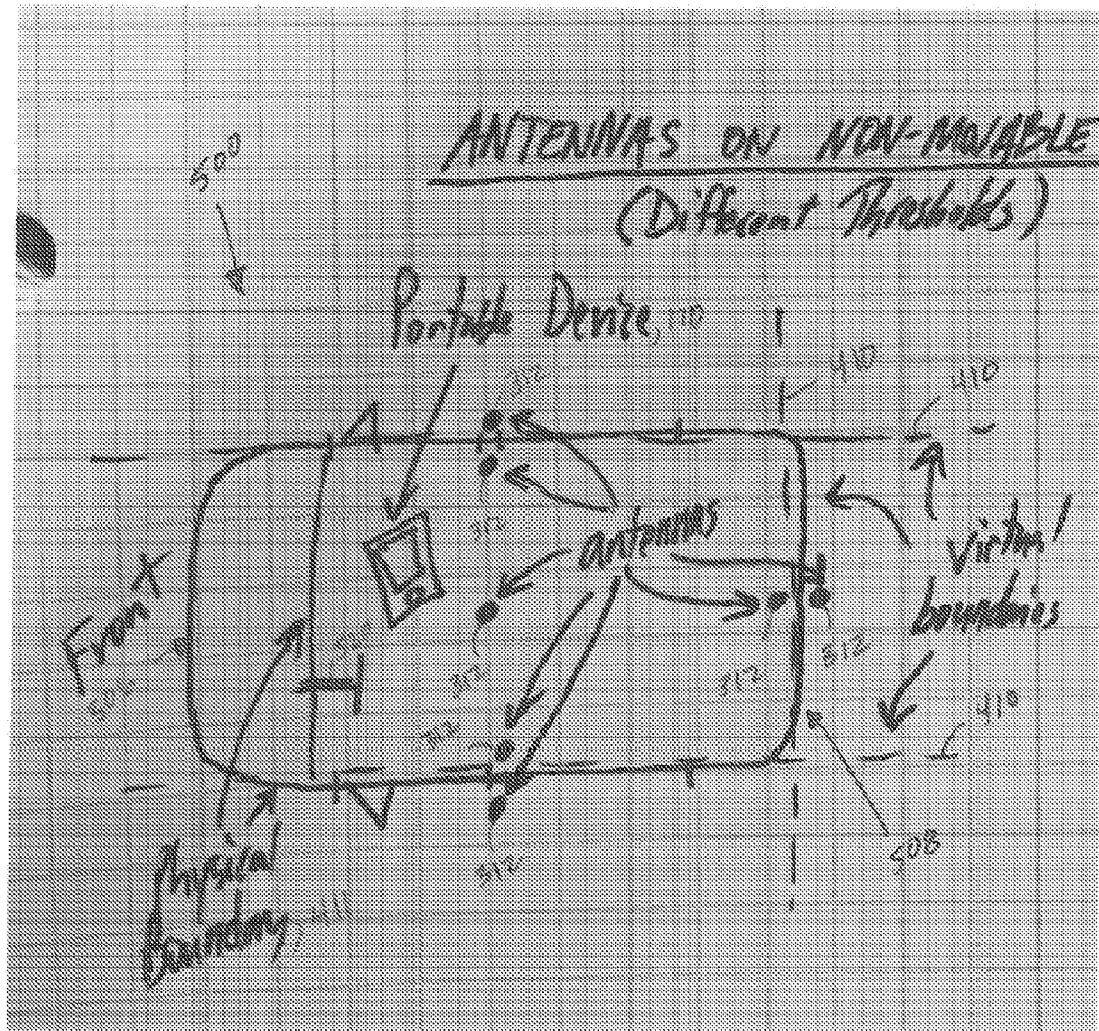 ANTENNAS ON NON-MOVABLE
(Different Thresholds)
500
Portable Device, 310
312
410
410
312
antennas
Virtual
boundaries
Front
312
312
312
312
410
508
312
Physical
Boundary, 411